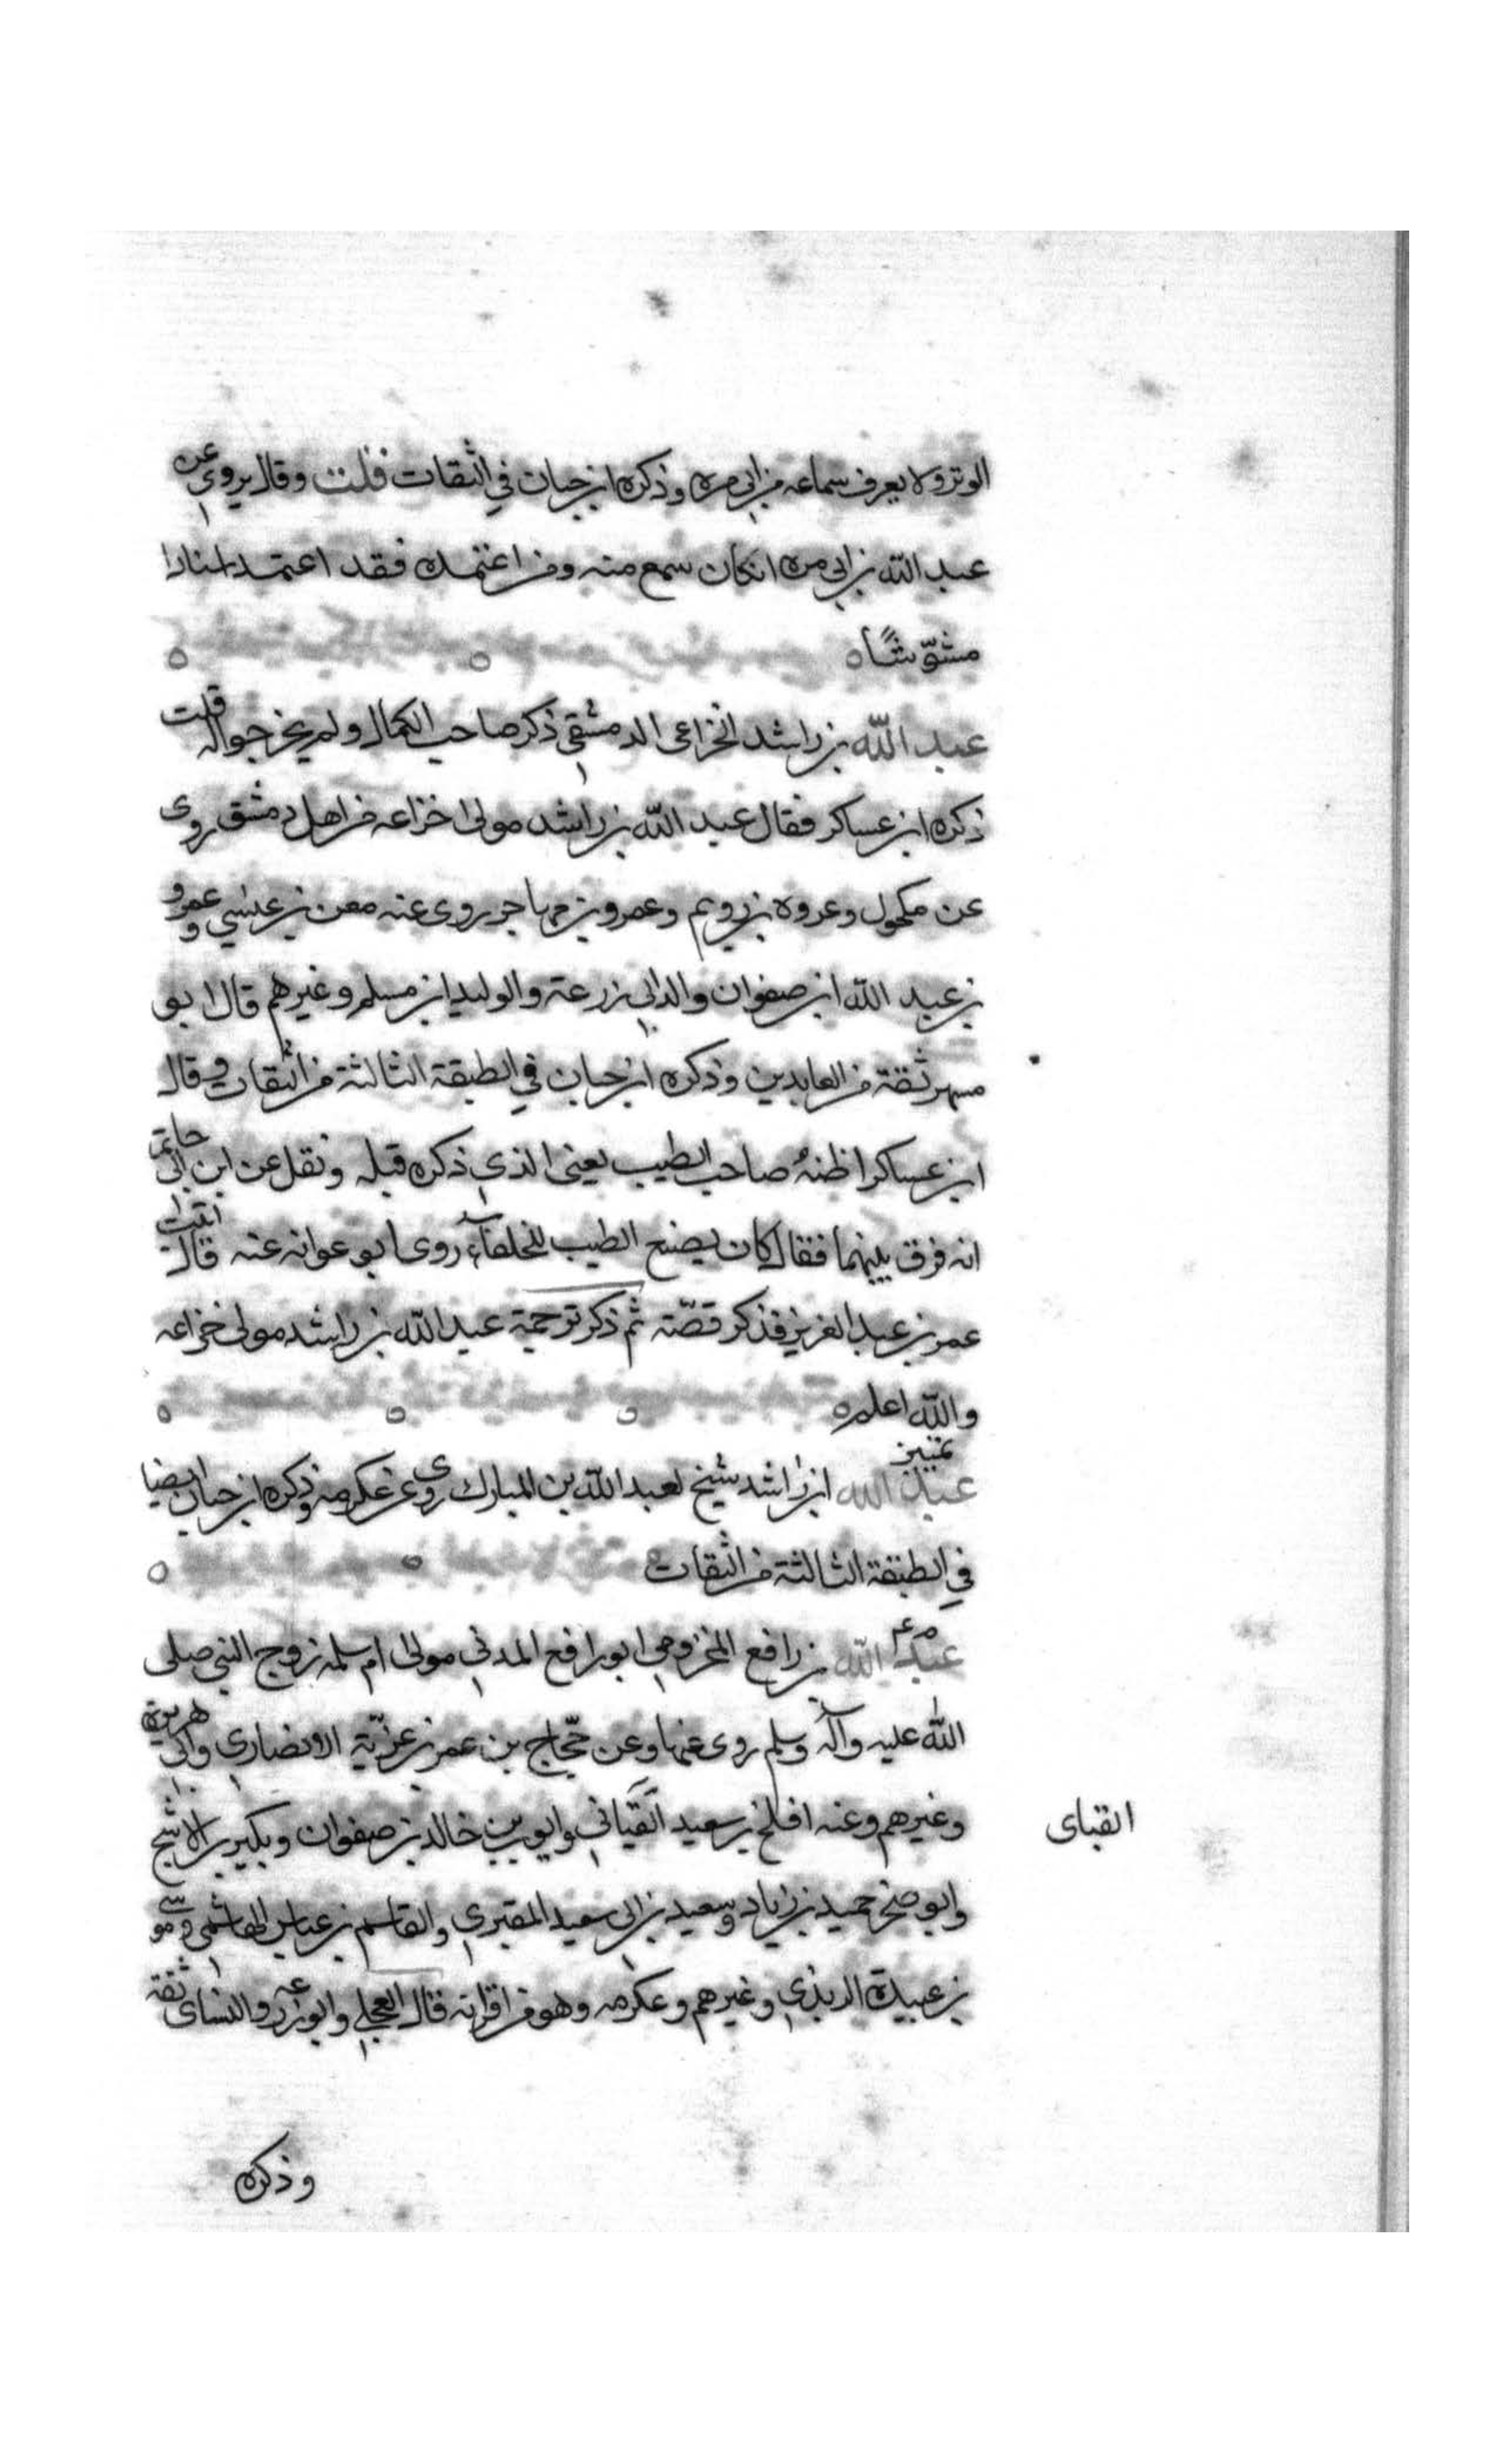 الوتر ولا يعرف سماعه من ابي مره وذكره ابن حبان في الثقات قلت وقال يروي عن
عبد الله بن ابي مره ان كان سمع منه ومن اعتمده فقد اعتمد اسنادا
مشوّشًا ه
عبد الله بن راشد الخزاعي الدمشقي ذكر صاحب الكمال ولم يخرجوا له قلت
ذكره ابن عساكر فقال عبد الله بن راشد مولى خزاعه من اهل دمشق روى
عن مكحول وعروة بن رويم وعمرو بن مهاجر روى عنه معن بن عيسي وعمرو
بن عبد الله ابن صفوان والد ابي زرعة والوليد ابن مسلم وغيرهم قال ابو
مسهر ثقة من العابدين وذكره ابن حبان في الطبقة الثالثة من الثقات وقال
ابن عساكر اظنهُ صاحب الطيب يعني الذي ذكره قبله ونقل عن ابن ابي حاتم
انه فرق بينهما فقال كان يصنع الطيب للخلفاء روى ابو عوانه عنه قال اتيت
عمر بن عبد العزيز فذكر قصّة ثم ذكر ترجمة عبد الله بن راشد مولى خزاعه
والله اعلم ه
تمييز
عبد الله ابن راشد شيخ لعبد الله بن المبارك روى عن عكرمه وذكره ابن حبان ايضا
في الطبقة الثالثة من الثقات
م عم
عبد الله بن رافع المخزومي ابو رافع المدني مولى ام سلمه زوج النبي صلى
الله عليه وآله وسلم روى عنها وعن حجّاج بن عمر بن غزيّة الانصاري وابي هريرة
وغيرهم وعنه افلح بن سعيد القباني وايوب بن خالد بن صفوان وبكير بن الاشج
القباى
وابو صخر حميد بن زياد وسعيد بن ابي سعيد المقبري والقاسم بن عباس الهاشمي وموسي
بن عبيدة الربذي وغيرهم وعكرمه وهو من اقرانه قال العجلي وابو زرعه والنساى ثقة
وذكره